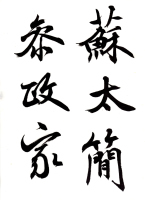 蘇太簡
叅政家